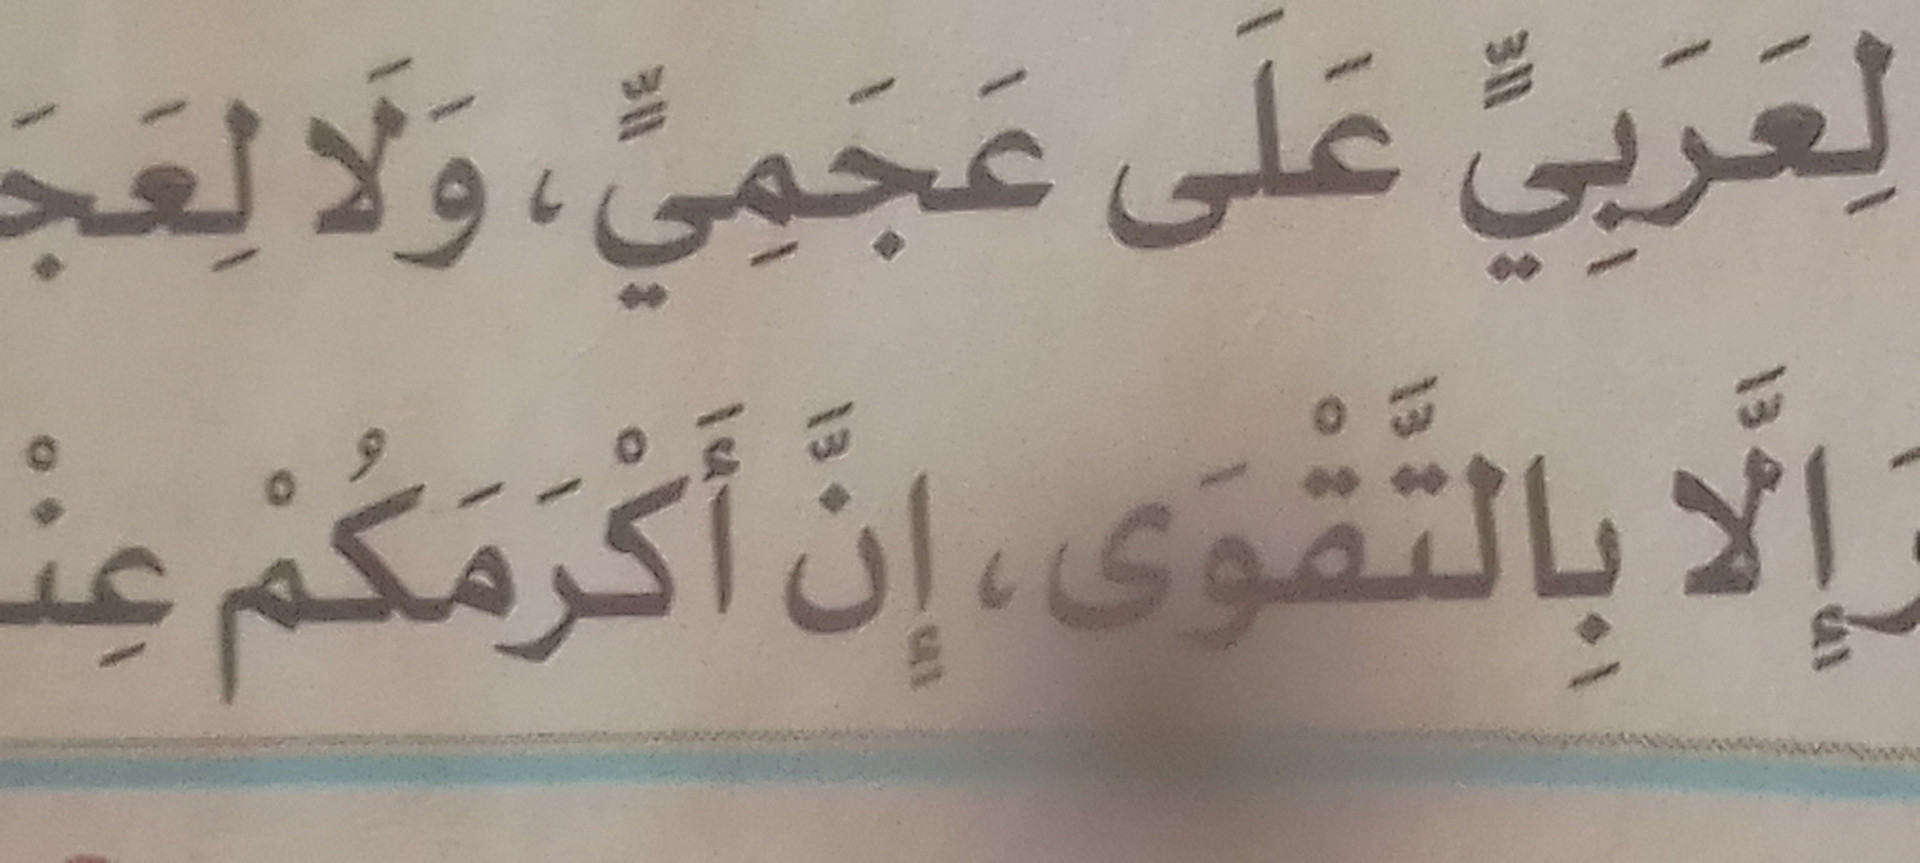 لِعَرَبِيٍّ عَلَى عَجَمِيٍّ، وَلَا لِعَجَ
إِلَّا بِالتَّقْوَى، إِنَّ أَكْرَمَكُمْ عِنْ